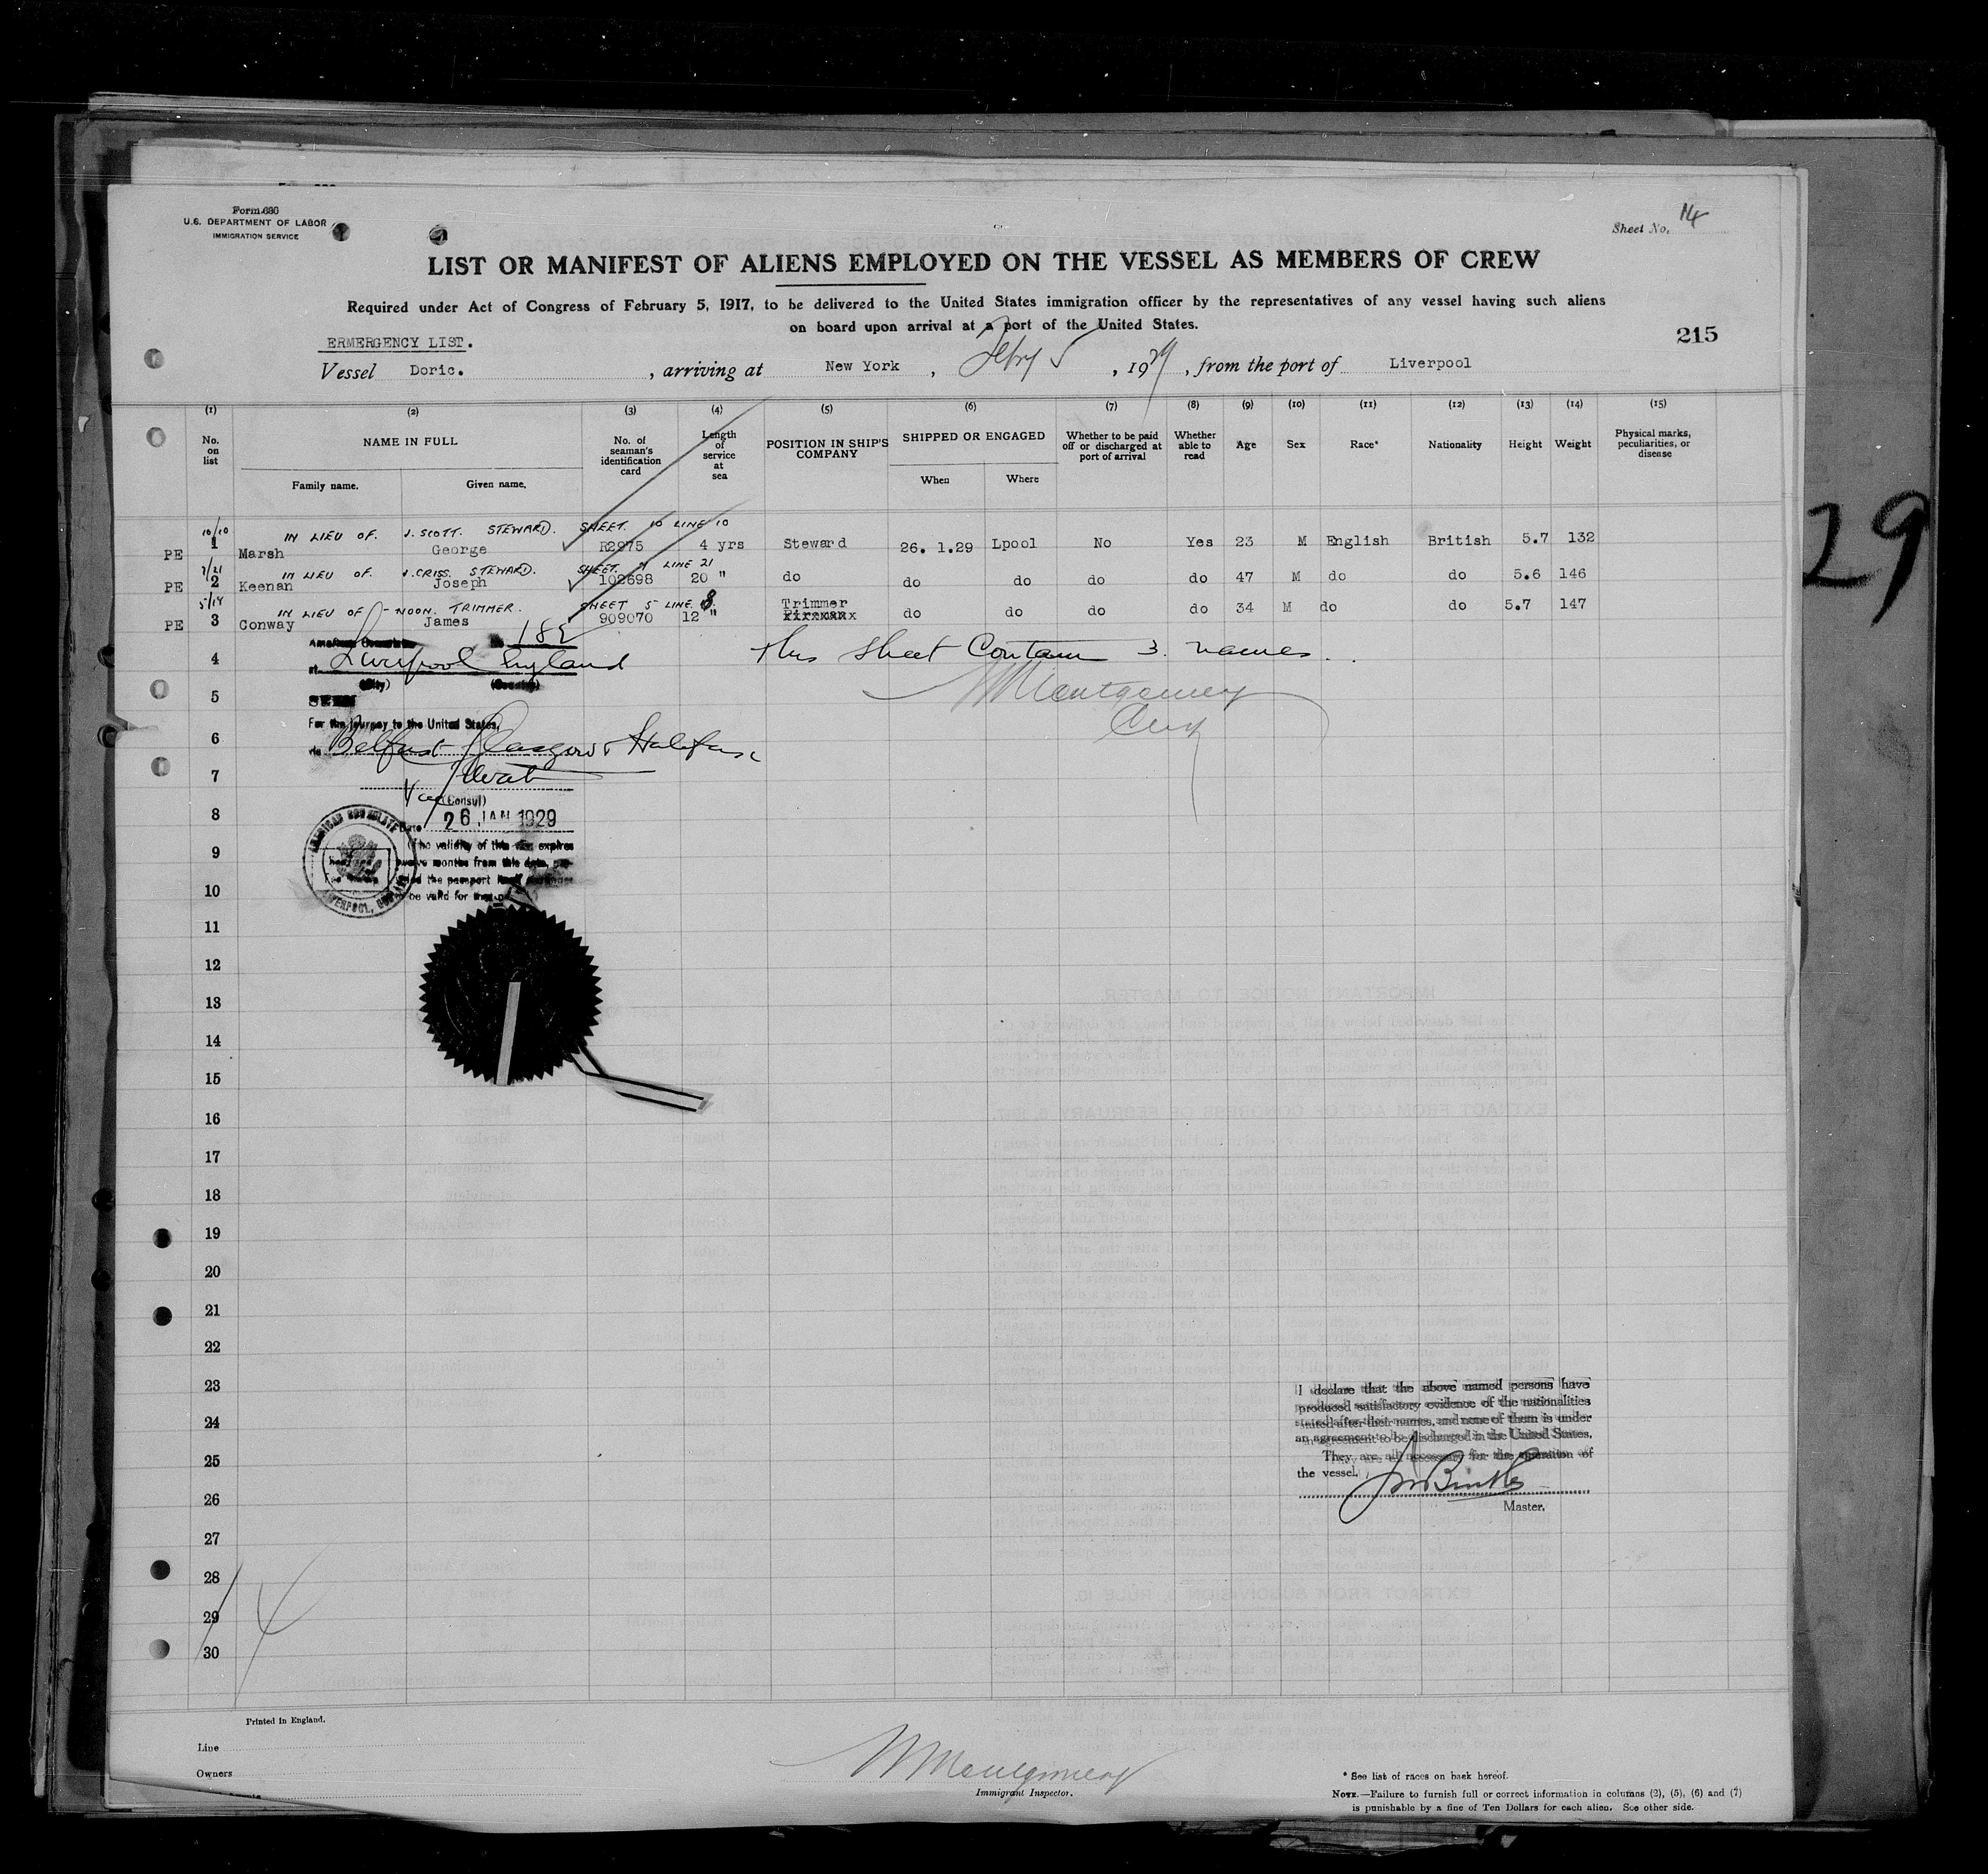 Form 680
U.S. DEPARTMENT OF LABOR
IMMIGRATION SERVICE
Sheet No. 14
LIST OR MANIFEST OF ALIENS EMPLOYED ON THE VESSEL AS MEMBERS OF CREW
Required under Act of Congress of February 5, 1917, to be delivered to the United States immigration officer by the representatives of any vessel having such aliens
on board upon arrival at a port of the United States.
215
ERMERGENCY LIST.
Vessel Doric. , arriving at New York , Febry 5 , 1929 , from the port of Liverpool
(1) (2) (3) (4) (5) (6) (7) (8) (9) (10) (11) (12) (13) (14) (15)
No. on list NAME IN FULL No. of seaman's identification card Length of service at sea POSITION IN SHIP'S COMPANY SHIPPED OR ENGAGED Whether to be paid off or discharged at port of arrival Whether able to read Age Sex Race* Nationality Height Weight Physical marks, peculiarities, or disease
Family name. Given name. When Where
10/10 IN LIEU OF. J. SCOTT. STEWARD. SHEET. 10 LINE 10
PE 1 Marsh George R2975 4 yrs Steward 26. 1.29 Lpool No Yes 23 M English British 5.7 132
7/21 IN LIEU OF. J. CRISS. STEWARD. SHEET. 7 LINE 21
PE 2 Keenan Joseph 102698 20 " do do do do do 47 M do do 5.6 146
5/18 IN LIEU OF - NOON. TRIMMER. SHEET 5 LINE 8
Trimmer
PE 3 Conway James 909070 12 " do do do do 34 M do do 5.7 147
182
4 Liverpool England This sheet Contain 3. names.
(City) (Country)
5 Montgomery
For the journey to the United States,
6 via Belfast Glasgow & Halifax
7
Vice (Consul)
8 Date 26 JAN 1929
AMERICAN CONSULATE
LIVERPOOL,
9 (The validity of this visa expires
twelve months from this date,
10 the passport
be valid for
11
12
13
14
15
16
17
18
19
20
21
22
23
24
25
26
27
28
29
30
14
I declare that the above named persons have
produced satisfactory evidence of the nationalities
stated after their names, and none of them is under
an agreement to be discharged in the United States.
They are all necessary for the operation of
the vessel.
Master.
Printed in England.
Line
Owners
Montgomery
Immigrant Inspector.
* See list of races on back hereof.
NOTE.—Failure to furnish full or correct information in columns (2), (5), (6) and (7)
is punishable by a fine of Ten Dollars for each alien. See other side.
29